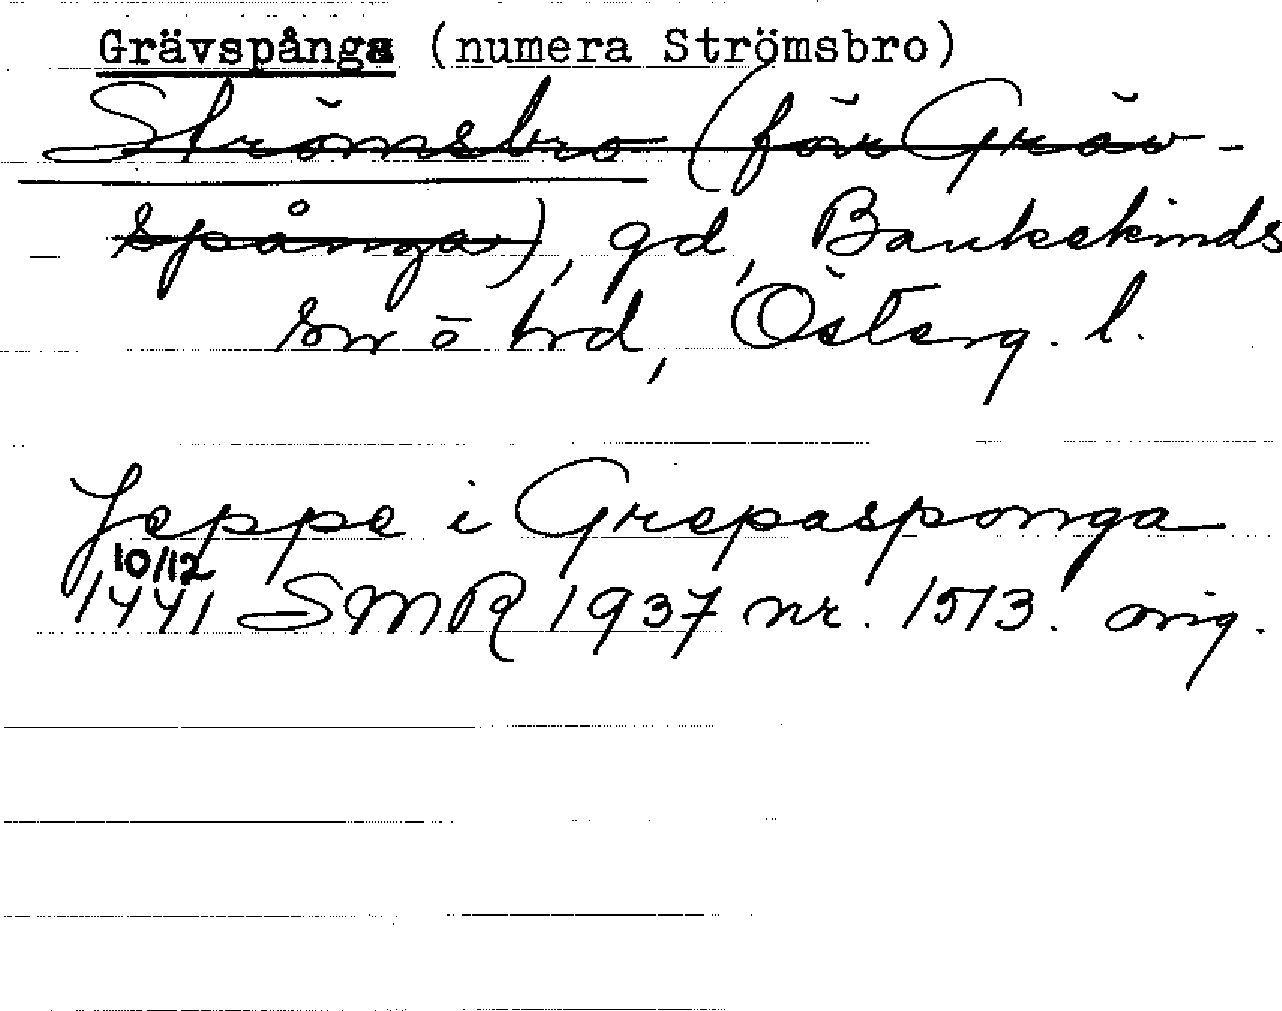 Grävspånga (numera Strömsbro)
Strömsbro (förr Gräv-
spånga), gd, Bankekinds
sn o hd, Österg. l.
Jeppe i Grepasponga
10/12
1441 SMR 1937 nr. 1513. orig.